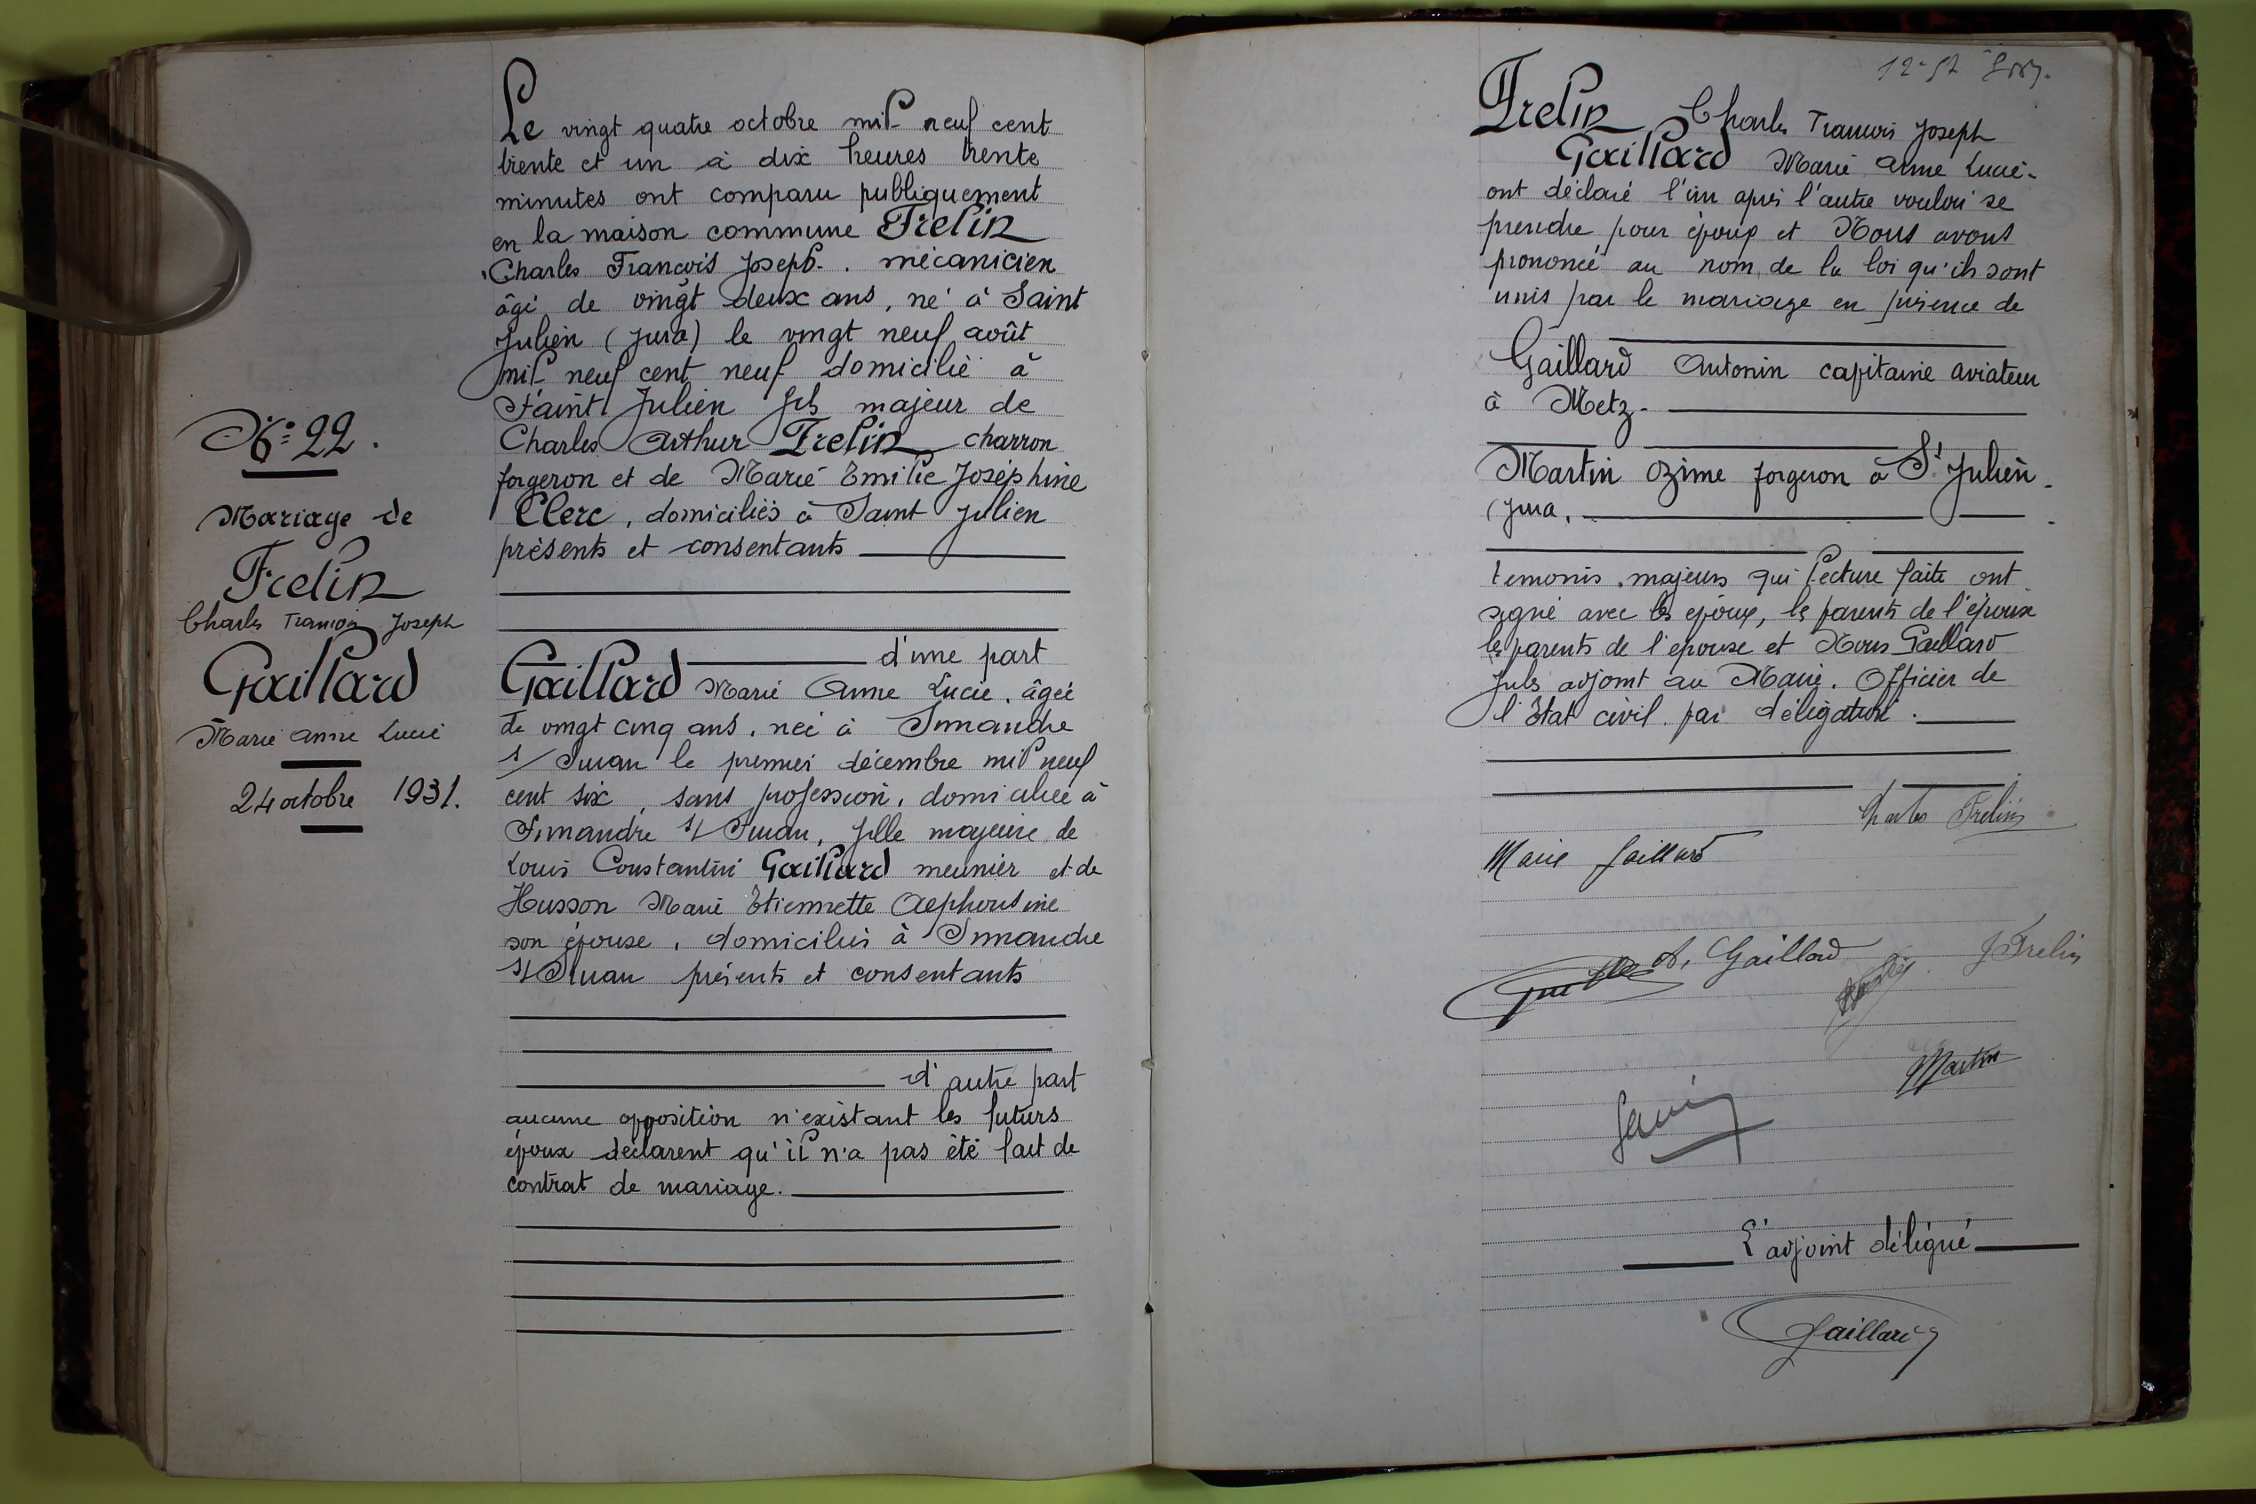 N° 22.
Mariage de
Frelin
Charles François Joseph
Gaillard
Marie Anne Lucie
24 octobre 1931.
Le vingt quatre octobre mil neuf cent
trente et un à dix heures trente
minutes ont comparu publiquement
en la maison commune Frelin
Charles François Joseph. mécanicien
âgé de vingt deux ans, né à Saint
Julien (Jura) le vingt neuf août
mil neuf cent neuf domicilié à
Saint Julien fils majeur de
Charles Arthur Frelin charron
forgeron et de Marie Emilie Joséphine
Clerc, domiciliés à Saint Julien
présents et consentants
d'une part
Gaillard Marie Anne Lucie, âgée
de vingt cinq ans, née à Simandre
s/ Suran le premier décembre mil neuf
cent six, sans profession, domiciliée à
Simandre s/ Suran, fille majeure de
Louis Constantin Gaillard meunier et de
Husson Marie Etiennette
son épouse, domiciliés à Simandre
s/ Suran présents et consentants
d'autre part
aucune opposition n'existant les futurs
époux déclarent qu'il n'a pas été fait de
contrat de mariage.
Frelin Charles François Joseph
Gaillard Marie Anne Lucie
ont déclaré l'un après l'autre vouloir se
prendre pour époux et Nous avons
prononcé au nom de la loi qu'ils sont
unis par le mariage en présence de
Gaillard Antonin capitaine aviateur
à Metz.
Martin Ozime forgeron à St Julien
(Jura.
temoins, majeurs qui lecture faite ont
signé avec les époux, les parents de l'époux
les parents de l'épouse et Nous Gaillard
Jules adjoint au Maire. Officier de
l'Etat civil par délégation.
Charles Frelin
Marie Gaillard
A. Gaillard
J Frelin
Martin
L'adjoint délégué
Gaillard